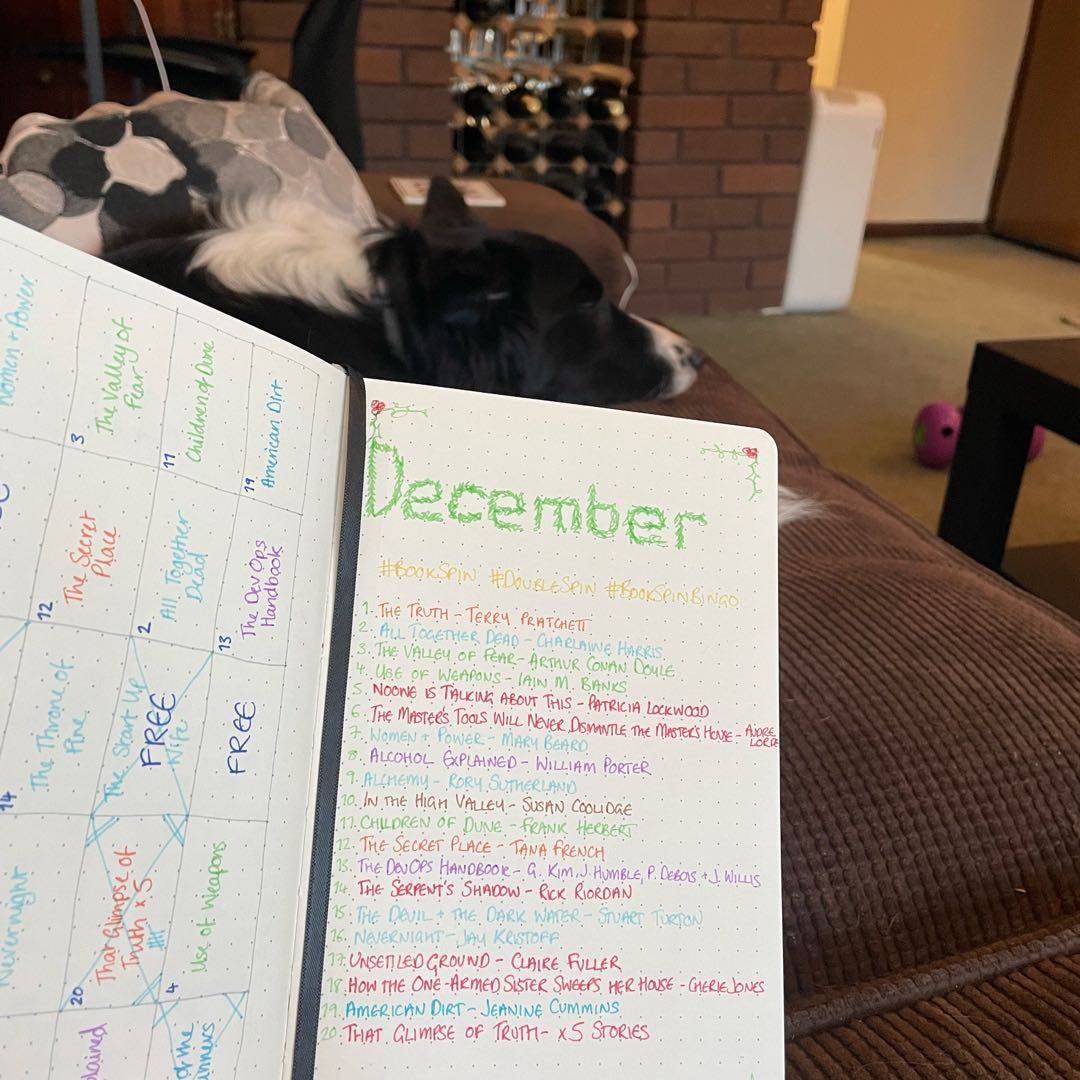 Women + Power
3
The Valley of
Fear
11
Children of Dune
19
American Dirt
12
The Secret
Place
2
All Together
Dead
13
The DevOps
Handbook
14
The Throne of
Fire
The Start Up
Wife
FREE
FREE
Nevernight
20
That Glimpse of
Truth x 5
4
Use of Weapons
December
#BOOKSPIN #DOUBLESPIN #BOOKSPINBINGO
1. THE TRUTH - TERRY PRATCHETT
2. ALL TOGETHER DEAD - CHARLAINE HARRIS
3. THE VALLEY OF FEAR - ARTHUR CONAN DOYLE
4. USE OF WEAPONS - IAIN M. BANKS
5. NOONE IS TALKING ABOUT THIS - PATRICIA LOCKWOOD
6. THE MASTER'S TOOLS WILL NEVER DISMANTLE THE MASTER'S HOUSE - AUDRE LORDE
7. WOMEN + POWER - MARY BEARD
8. ALCOHOL EXPLAINED - WILLIAM PORTER
9. ALCHEMY - RORY SUTHERLAND
10. IN THE HIGH VALLEY - SUSAN COOLIDGE
11. CHILDREN OF DUNE - FRANK HERBERT
12. THE SECRET PLACE - TANA FRENCH
13. THE DEVOPS HANDBOOK - G. KIM, J. HUMBLE, P. DEBOIS, + J. WILLIS
14. THE SERPENT'S SHADOW - RICK RIORDAN
15. THE DEVIL + THE DARK WATER - STUART TURTON
16. NEVERNIGHT - JAY KRISTOFF
17. UNSETTLED GROUND - CLAIRE FULLER
18. HOW THE ONE-ARMED SISTER SWEEPS HER HOUSE - CHERIE JONES
19. AMERICAN DIRT - JEANINE CUMMINS
20. THAT GLIMPSE OF TRUTH - x5 STORIES